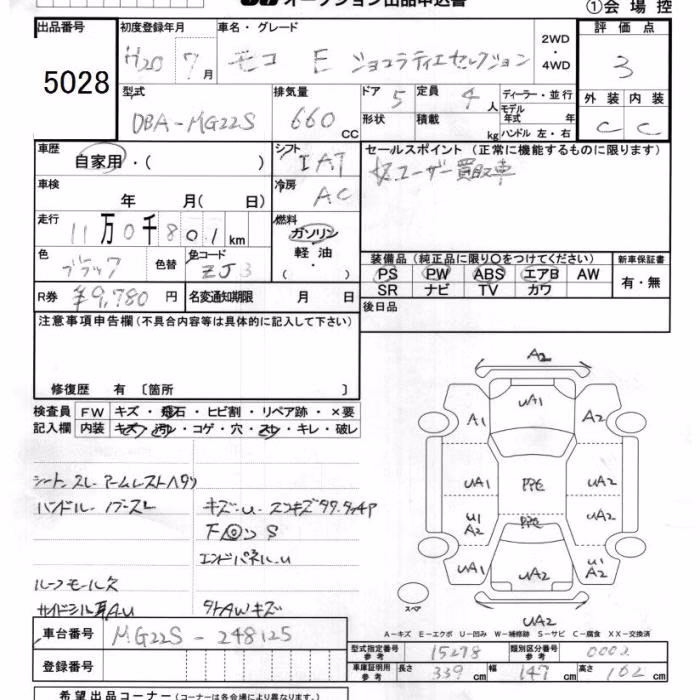 オークション出品申込書
①会場控
出品番号 初度登録年月 車名・グレード 2WD ・ 4WD 評価点
5028 H20 7月 モコ E ショコラティエセレクション 3
型式 排気量 ドア 5 定員 4人 ディーラー・並行 外装 内装
DBA-MG22S 660 CC 形状 積載 kg モデル年式 年 C C
ハンドル 左・右
車歴 自家用・( ) シフト IAT セールスポイント (正常に機能するものに限ります)
車検 年 月( 日) 冷房 AC ユーザー買取車
走行 11万0千801km 燃料 ガソリン 軽油 ・( )
色 ブラック 色替 色コード ZJ3 装備品 (純正品に限り○をつけてください) 新車保証書
PS PW ABS エアB AW 有・無
R券 ¥9,780円 名変通知期限 月 日 SR ナビ TV カワ
後日品
注意事項申告欄 (不具合内容等は具体的に記入して下さい)
修復歴 有 〔箇所 〕
検査員記入欄 FW キズ・飛石・ヒビ割・リペア跡・×要
内装 キズ・汚レ・コゲ・穴・スレ・キレ・破レ
シートスレ アームレストヘタリ
ハンドル・ノブスレ キズ・U・スリキズ
エンドパネルU
ルーフモール欠
サイドシル
外AWキズ
A2
UA1
A1 A2
UA1 PPC UA2
U1 A2 PPC UA2
UA1 UA2 U1 A2
スペア UA2
A-キズ E-エクボ U-凹み W-補修跡 S-サビ C-腐食 XX-交換済
車台番号 MG22S-248125
登録番号
型式指定番号 参考 15278 類別区分番号 参考 0002
車庫証明用 参考 長さ 339cm 幅 147cm 高さ 162cm
希望出品コーナー (コーナーは各会場により異なります。)